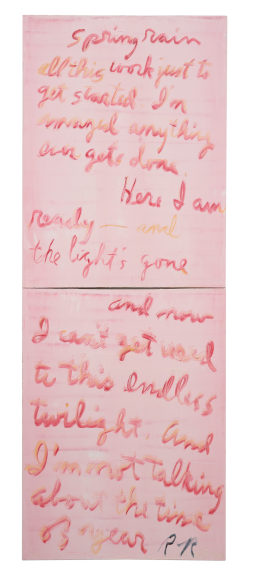 spring rain
all this work just to
get started. I'm
amazed anything
ever gets done.
Here I am
ready — and
the light's gone
and now
I can't get used
to this endless
twilight. And
I'm not talking
about the time
of year RR